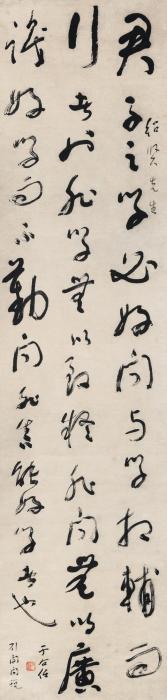 君子之學必好問與學相輔而
紹賢先生
行者也非學無以致疑非問無以廣
識好學而不勤問非真能好學者也
于右任
引劉開問說